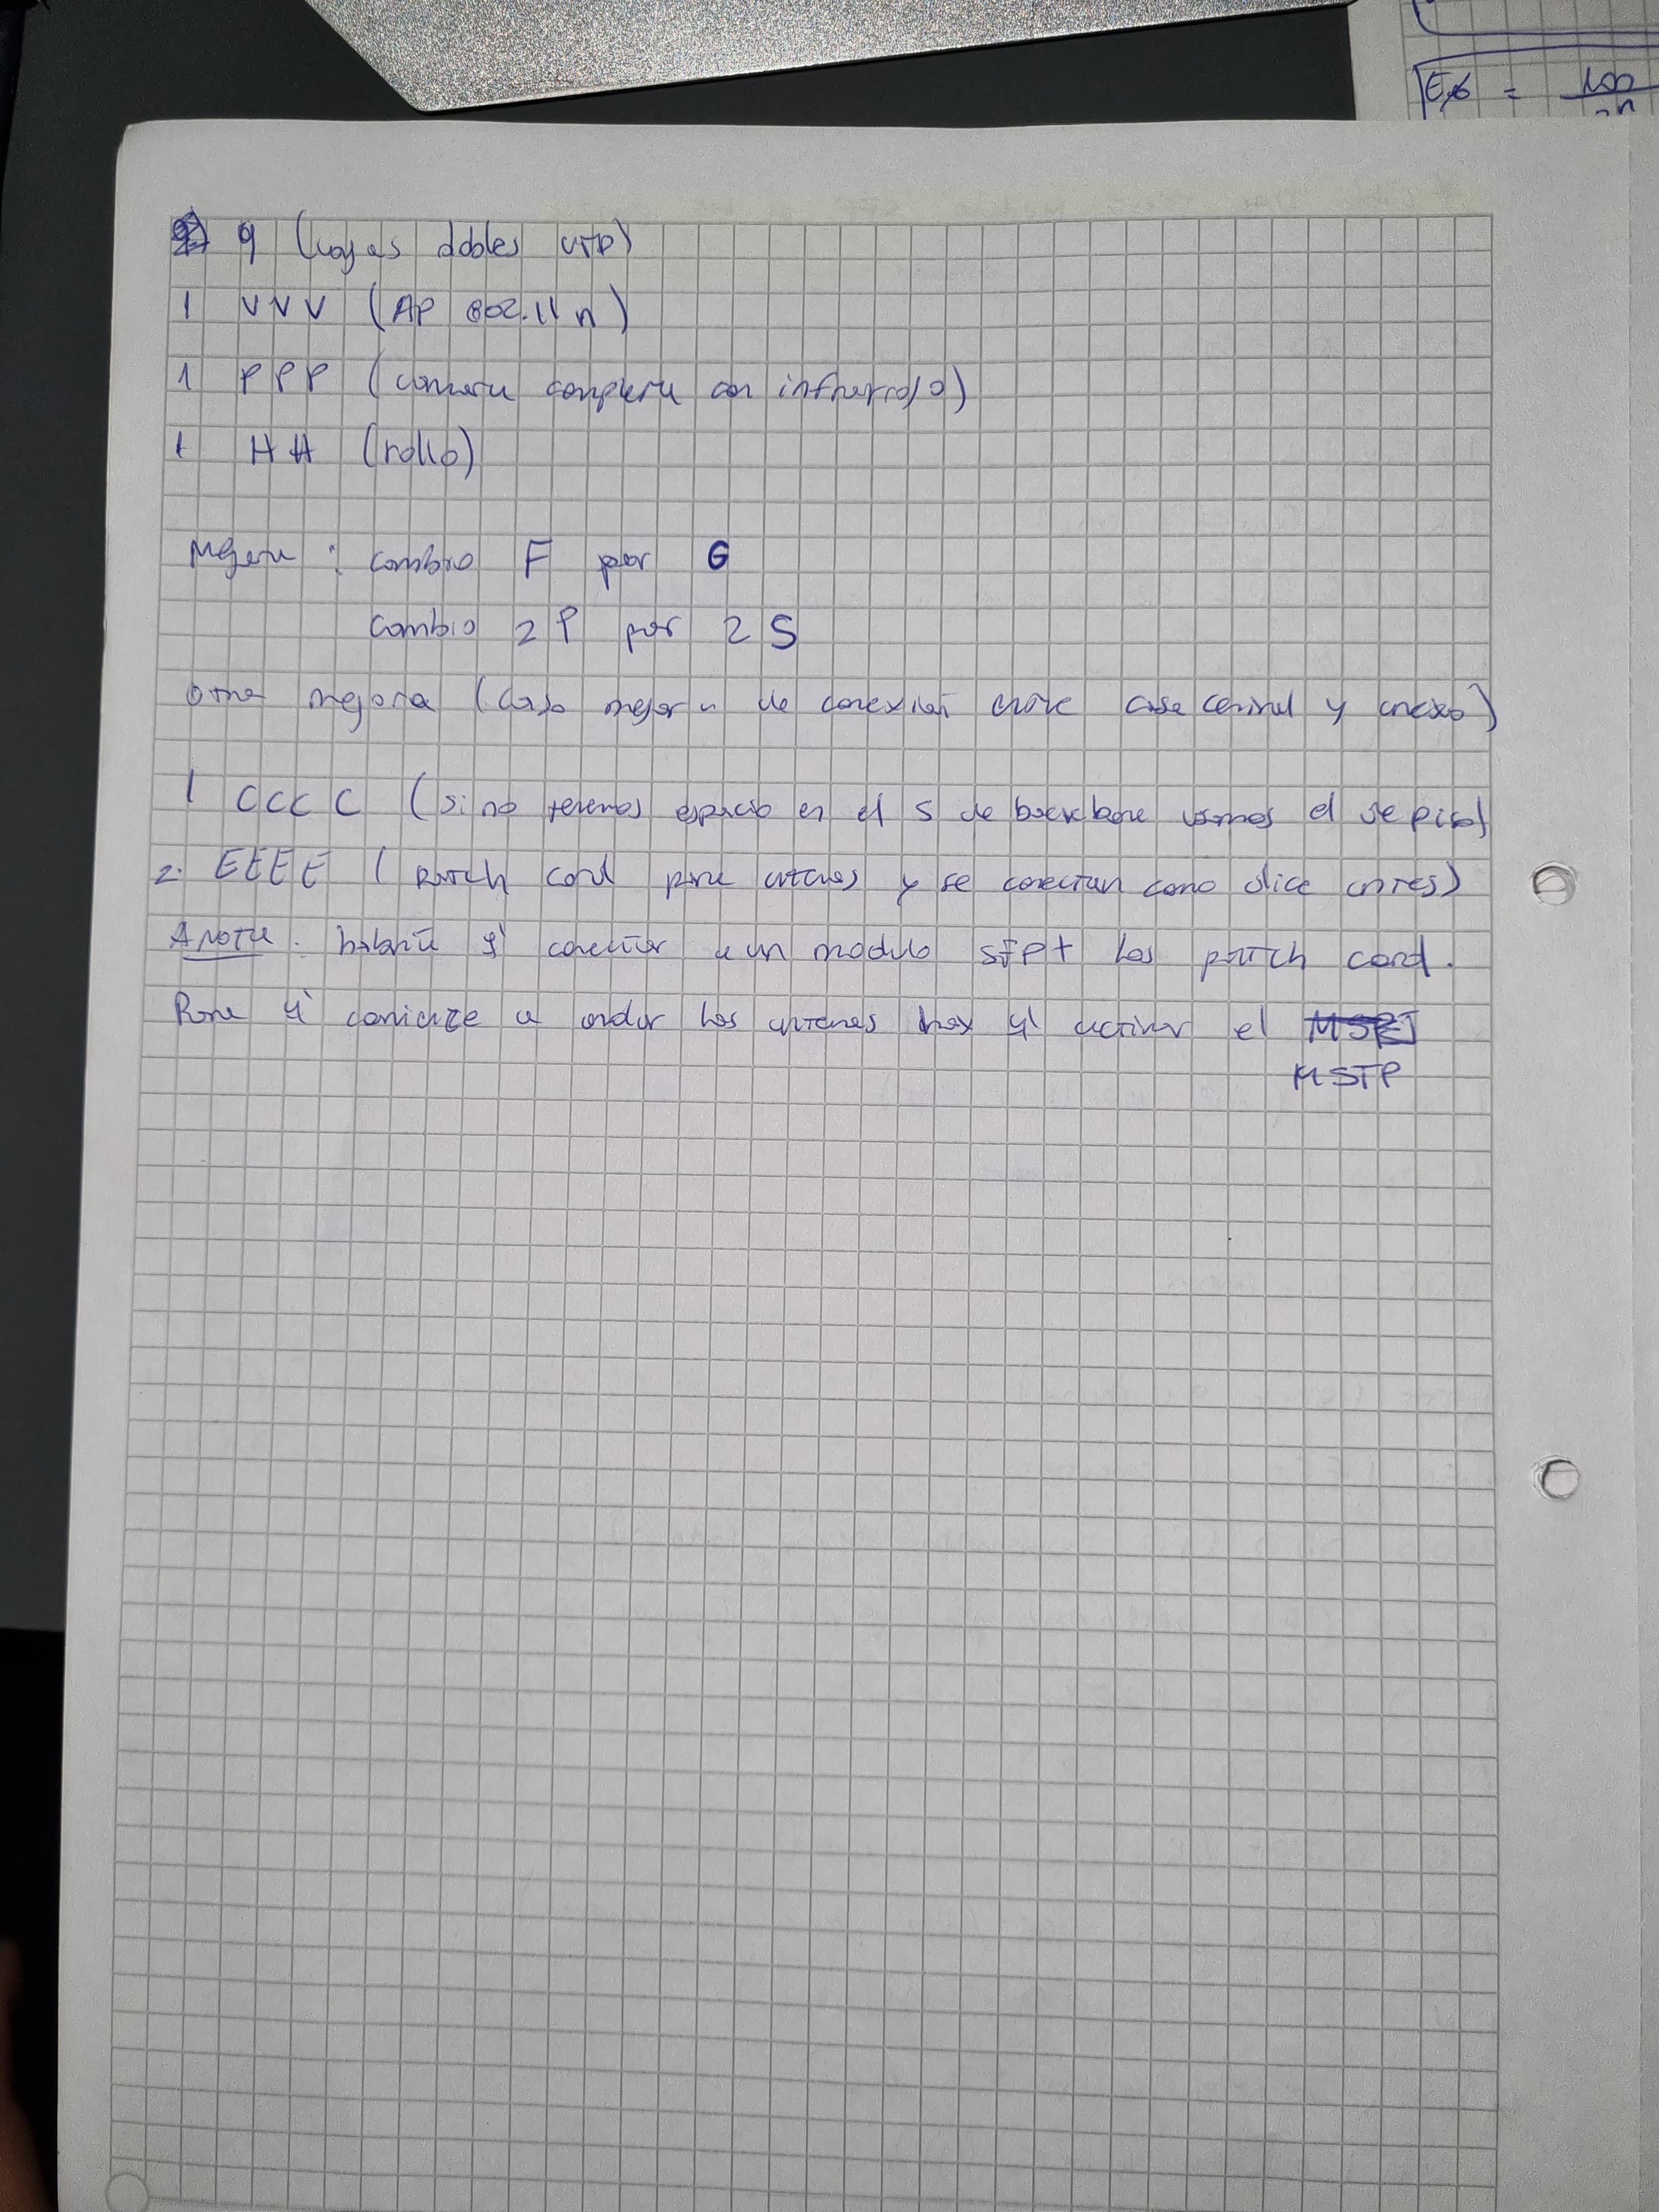 E6 = 100
9 (cajas dobles UTP)
1 VVV (AP 802.11 n)
1 PPP (camara completa con infrarrojo)
1 HH (rollo)
Mejora : cambio F por G
cambio 2 P por 2 S
otra mejora (caso mejora de conexión entre casa central y anexo)
1 CCCC (si no tenemos espacio en el S de backbone usamos el de piso)
2. EEEE (patch cord para antenas y se conectan como dice antes)
A NOTA. habria q' conectar a un modulo SFP+ los patch cord.
Para q' comience a andar las antenas hay q' activar el
MSTP